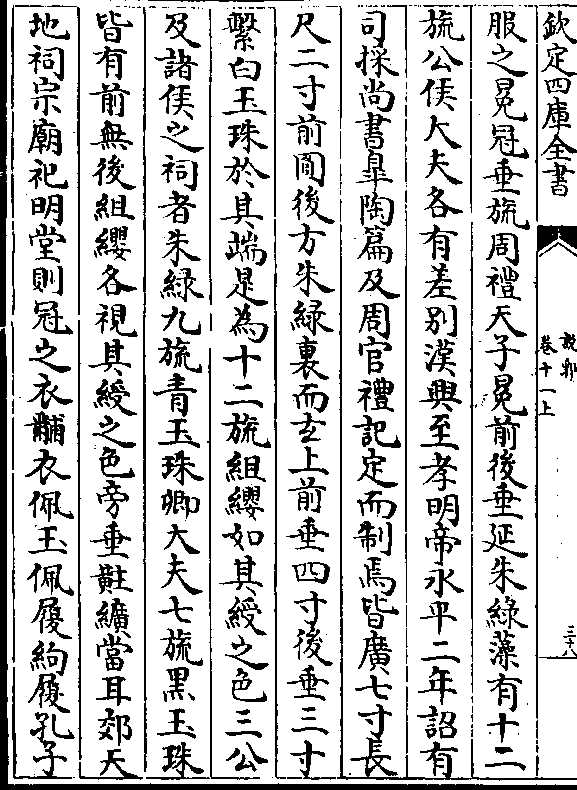 欽定四庫全書
說郛
卷十一上
三十八
服之冕冠垂旒周禮天子冕前後垂延朱緑藻有十二
旒公侯大夫各有差别漢興至孝明帝永平二年詔有
司採尚書臯陶篇及周官禮記定而制焉皆廣七寸長
尺二寸前圎後方朱緑裏而𤣥上前垂四寸後垂三寸
繫白玉珠於其端是為十二旒組纓如其綬之色三公
及諸侯之祠者朱緑九旒青玉珠卿大夫七旒黑玉珠
皆有前無後組纓各視其綬之色旁垂黈纊當耳郊天
地祠宗廟祀明堂則冠之衣黼衣佩玉佩履絇履孔子